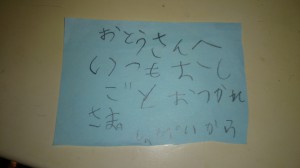 おとうさんへ
いつもおし
ごとおつかれ
さま
から